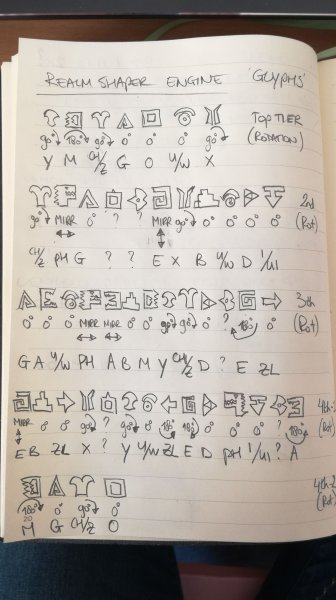 REALM SHAPER ENGINE 'GLYPHS'
TOP TIER
90° 180° 90° 0° 0° 0° 90° (ROTATION)
Y M CH/Z G O U/W X
2nd
90° MIRR 0° ? ? MIRR 90° 0° 0° 0° 0° (Rot)
CH/Z PH G ? ? E X B U/W D 1/UI
3rd
0° 0° 0° MIRR MIRR 0° 0° 90° 90° 0° ? 180° 0° (Rot)
G A U/W PH A B M Y CH/Z D ? E ZL
MIRR 0° 0° 90° ? 90° 0° 180° 180° 0° 0° 0° ? 180° (Rot)
E B ZL X ? Y U/W ZL E D PH 1/UI ? A
180° 0° 90° 0° (Rot)
M G CH/Z O